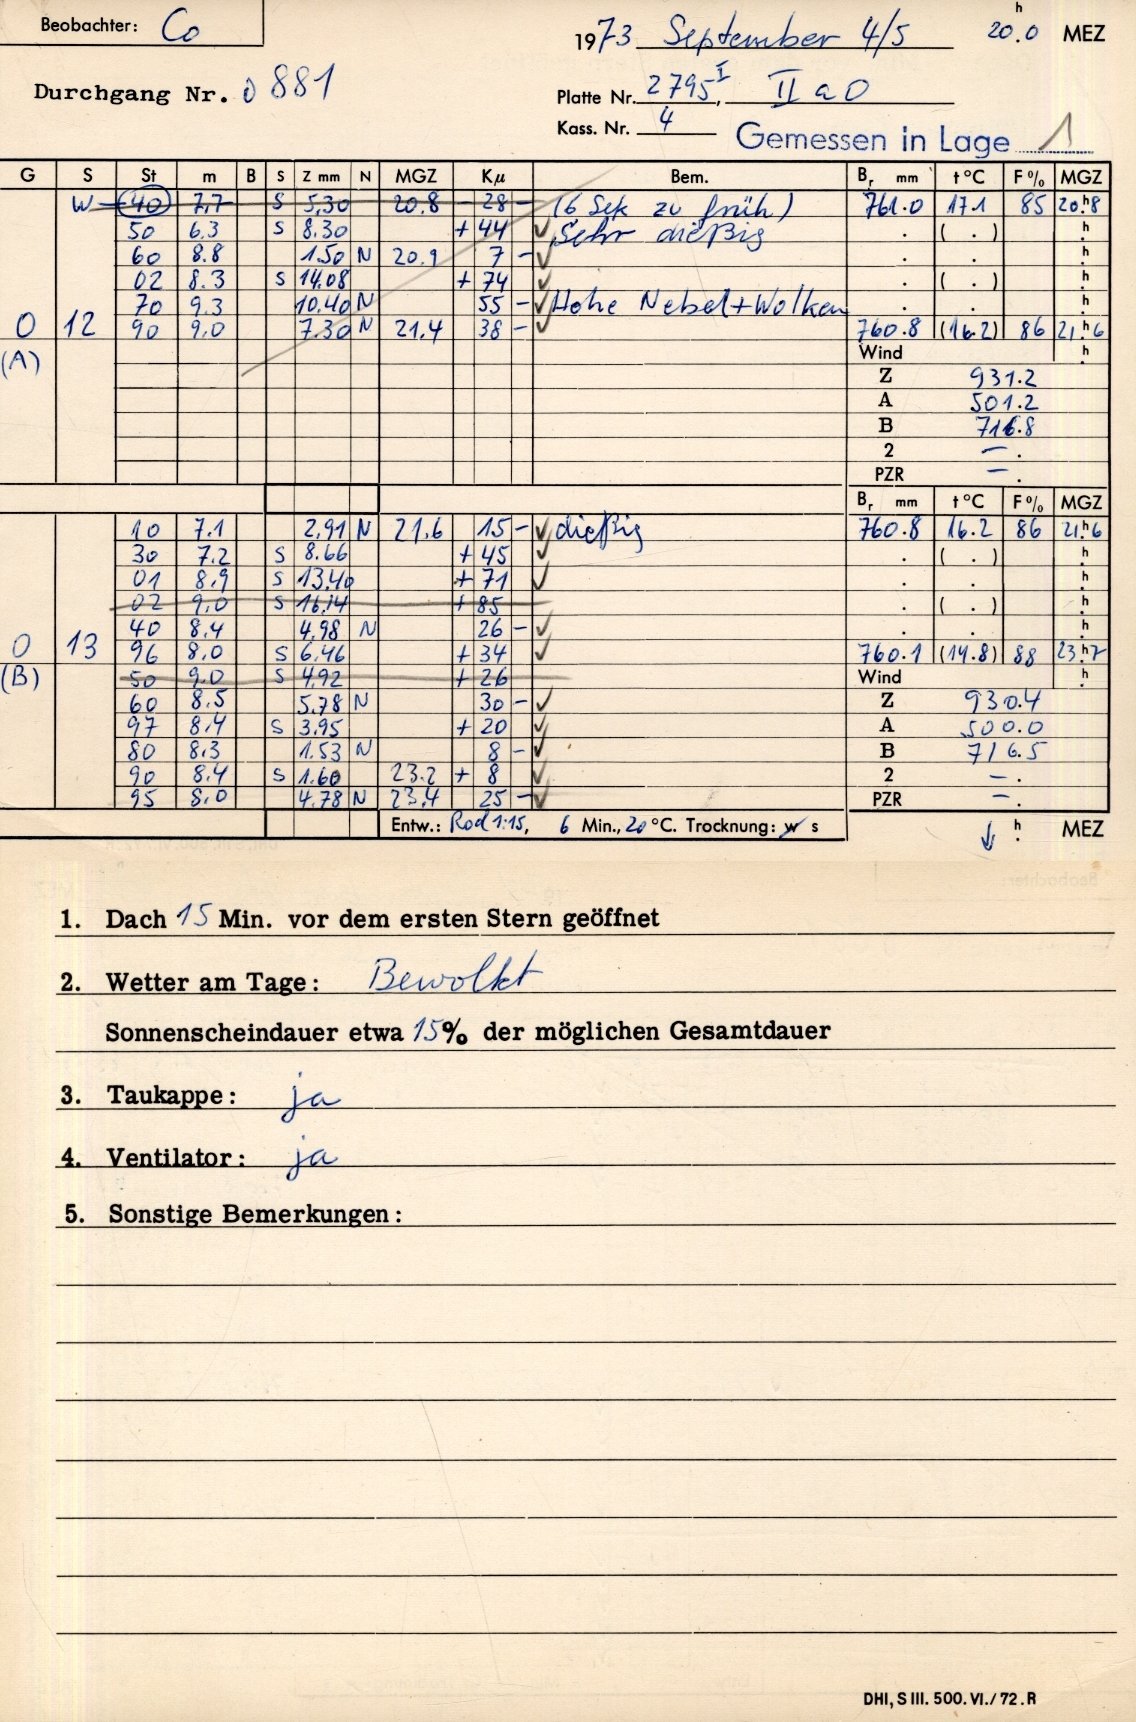 Beobachter: Co
1973 September 4/5 20.0 h MEZ
Durchgang Nr. 0881
Platte Nr. 2795 I, II a O
Kass. Nr. 4
Gemessen in Lage 1
G S St m B S Z mm N MGZ Kμ Bem. Br mm t °C F % MGZ
W 40 7,7 S 5,30 20.8 - 28 - (6 Sek zu früh) 761.0 17.1 85 20.h8
50 6.3 S 8.30 + 44 ✓ Sehr dießig . ( . ) h
60 8.8 1.50 N 20.9 7 - ✓ . . h
02 8.3 S 14.08 + 74 ✓ . ( . ) h
70 9.3 10.40 N 55 - ✓ Hohe Nebel+Wolken . . h
0 12 90 9,0 7.30 N 21.4 38 - ✓ 760.8 (16.2) 86 21.h6
(A) Wind h
Z 931.2
A 501.2
B 716.8
2 - .
PZR - .
Br mm t °C F % MGZ
10 7.1 2,91 N 21,6 15 - ✓ dießig 760.8 16.2 86 21.h6
30 7.2 S 8.66 + 45 ✓ . ( . ) h
01 8,9 S 13.40 + 71 ✓ . . h
02 9,0 S 16,14 + 85 . ( . ) h
40 8.4 4.98 N 26 - ✓ . . h
0 13 96 8,0 S 6.46 + 34 ✓ 760.1 (14.8) 88 23.h7
(B) 50 9.0 S 4,92 + 26 Wind h
60 8.5 5.78 N 30 - ✓ Z 930.4
97 8.4 S 3.95 + 20 ✓ A 500.0
80 8.3 1.53 N 8 - ✓ B 716.5
90 8.4 S 1.60 23.2 + 8 ✓ 2 - .
95 8.0 4.78 N 23,4 25 - ✓ PZR - .
Entw.: Rod 1:15, 6 Min., 20 °C. Trocknung: w s ↓ h . MEZ
1. Dach 15 Min. vor dem ersten Stern geöffnet
2. Wetter am Tage: Bewolkt
Sonnenscheindauer etwa 15% der möglichen Gesamtdauer
3. Taukappe: ja
4. Ventilator: ja
5. Sonstige Bemerkungen:
DHI, S III. 500. VI./72. R